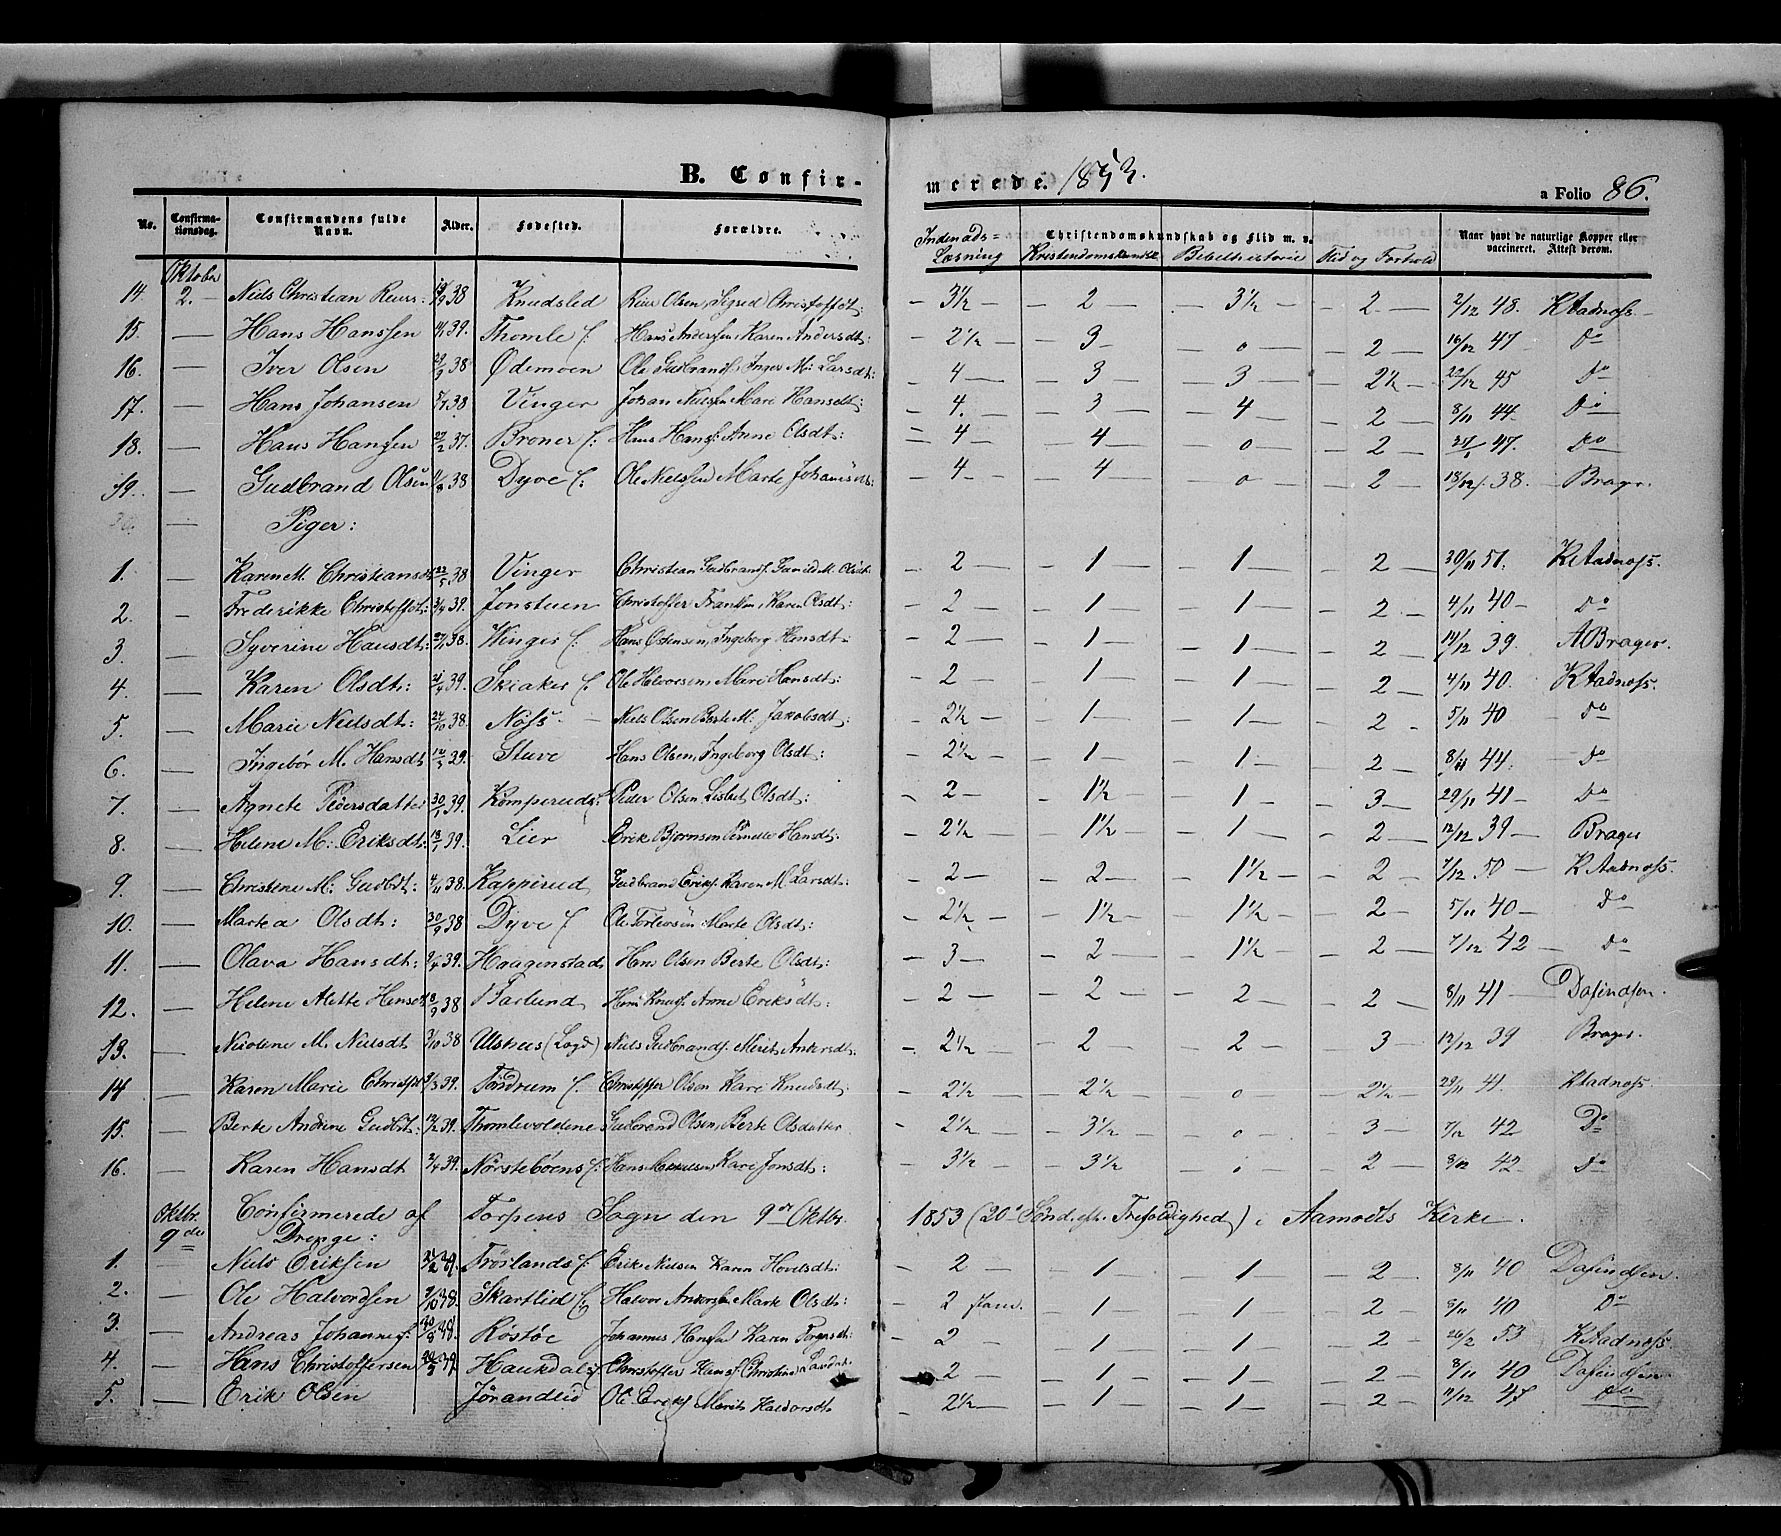 B. Confir-
merede. 1853.
a Folio 86.
No. Confirma-tionsdag. Confirmandens fulde Navn. Alder. Fødested. Forældre. Indenads-Læsning Christendomskundskab og Flid m. v. Kristendomskundsk. Bibelhistorie Flid og Forhold Naar havt de naturlige Kopper eller vaccineret. Attest derom.
Oktober
14. 2. — Niels Christian Reiers: 19/9 38 Knudsled Reier Olsen, Sigred Christoffdt: — 3½ — — 2 — — 3½ — — 2 — 2/12 48. K Aadness
15. — Hans Hanssen 4/1 39. Thomle f. Hans Anderssen, Karen Andersdt: — 2½ — 3 — — 0 — — 2 — 16/12 47 Do
16. — Iver Olsen 29/9 38 Ødemoen Ole Gudbrands. Inger M: Larsdt: — 4 — — 3 — — 3 — — 2½ — 22/12 45 Do
17. — Hans Johansen 5/7 38 Vinger Johan Nielsen Mari Hansdt: — 4. — — 3 — — 4 — — 2 — 8/11 44 Do
18. — Hans Hanssen 27/2 37. Broner f: Hans Hanss. Anne Olsdt: — 4 — — 4 — — 0 — — 2 — 21/1 47. Do
19. — Gudbrand Olsen 11/8 38 Dyve f: Ole Nielssen Marte Johansdt: — 4 — — 4 — — 0 — — 2 — 18/12 38. — Brager.
— Piger:
1. — Karen M. Christiansdt 22/5 38 Vinger Christian Gudbrands. Gunild M. Olsdt: — 2 — — 1 — — 1 — — 2 — 30/11 51. K Aadness.
2. — Frederikke Christoffdt: 3/4 39. Jonstuen Christoffer Frantsen, Karen Olsdt: — 2 — — 1 — — 1 — — 2 — 4/11 40 — Do
3. — Syverine Hansdt: 27/11 38. Winger f: Hans Ostensen, Ingeborg Hansdt — — 2 — — 1 — — 1 — — 2 — 14/12 39. A Brager.
4. — Karen Olsdt: 21/4 39. Skiaker f. Ole Halvorsen, Mari Hansdt: — 2 — — 1 — — 1 — — 2 — 4/11 40. K Aadness.
5. — Marie Nielsdt: 24/10 38. Nøss — Niels Olsen Berte M. Jakobsdt: — 2½ — — 1 — — 1 — — 2 — 5/11 40 Do
6. — Ingebør M. Hansdt 12/3 39. Stuve Hans Olsen, Ingeborg Olsdt: — 2½ — — 1 — — 1 — — 2 — 8/11 44. — Do
7. — Agnete Pedersdatter 30/1 39. Komperud f. Peder Olsen Lisbet Olsdt: — 2 — — 1½ — — 1 — — 3 — 29/11 41 — Do
8. — Helene M: Eriksdt: 18/1 39. Lier Erik Bjørnsen Pernelle Hansdt: — 2½ — — 1½ — — 1 — — 2 — 12/12 39 — Brager
9. — Christine M: Gudbdt: 4/11 38. Kapperud Gudbrand Eriks. Karen M Larsdt: — 2 — — 2 — — 1½ — — 2 — 7/12 50 — K Aadness.
10. — Martea Olsdt: 30/9 38 Dyve f Ole Torlevsen Marte Olsdt: — 2½ — — 1½ — — 1½ — — 2 — 5/11 40 — Do
11. — Olava Hansdt: 9/4 39. Haagenstad Hans Olsen Berte Olsdt: — 3 — — 2 — — 1½ — — 2 — 7/12 42 — Do
12. — Helene Mette Hansdt 18/9 38 Barlund Hans Knuds. Anne Eriksdt: — 2 — — 2 — — 2 — — 2 — 8/11 41 —
13. — Nicoline M. Nielsdt 7/10 38 Ulsrus (Logd) Niels Gudbrands. Merit Andersdt: — 2½ — — 2 — — 2 — — 3 — 12/12 39 Brager.
14 — Karen Marie Christfdt 9/3 39. Tondrum f. Christoffer Olsen Kari Knudsdt: — 2½ — — 2½ — — 0 — — 2½ — 29/11 41. K Aadness.
15. — Berte Andrine Gudbdt: 12/2 39. Thomlevoldene Gudbrand Olsen, Berte Olsdatter — 2½ — — 3½ — — 0 — — 3 — 7/12 42 Do
16. — Karen Hansdt 2/4 39. Nørstebøens f. Hans Mikkelsen, Kari Jonsdt: — 3½ — — 3½ — — 2 — 8/12 42 — Do
Oktbr. 9de Confirmerede af Torpens Sogn den 9de Oktbr. 1853 (20de Sønd. eft. Trefoldighed) i Aamodts Kirke.
Drenge:
1. — Niels Eriksen Trøslands f. Erik Nielsen Karen Hovelsdt: — 2 — — 1 — — 1 — — 2 — 8/11 40
2. — Ole Halvordsen 9/10 38. Skartlid f. Halvor Anderssen Marte Olsdt: — 2 — 1 — — 1 — — 2 — 8/11 40 Do
3. — Andreas Johannes. Røstøe Johannes Hanssen Karen — 2 — 1 — — 1 — — 2 — 26/2 53 K Aadness.
4. — Hans Christoffersen Haukdals f Christoffer Hans. Christine Larsdt. — 2 — — 1 — — 1 — — 2 — 8/11 40
5. — Erik Olsen Jørandlid Ole Eriks. Merit Haldorsdt — 2½ — — 1 — — 1 — — 2 — 11/12 47 Do